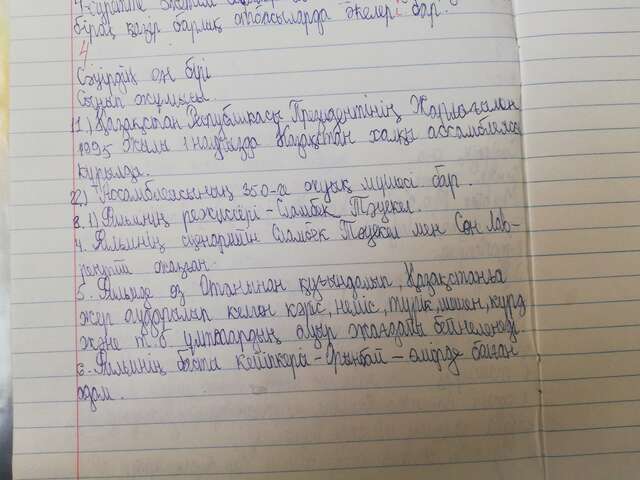 бірақ қазір барлық отбасыларда әкелері бар.
4
Сәуірдің он бірі
Сынып жұмысы.
1) Қазақстан Республикасы Президентінің Жарлығымен
1995 жылы 1 наурызда Қазақстан халқы ассамблеясы
құрылды.
2) Ассамблеясының 350-ге жуық мүшесі бар.
3. 1) Фильмнің режиссері - Сламбек Тәуекел.
4. Фильмнің сценарийін Сламбек Тәуекел мен Сон Лав-
рентий жазған.
5. Фильмде өз Отанынан қуғындалып, Қазақстанға
жер аударылып келген кәріс, неміс, түрік, шешен, күрд
және т.б ұлттардың ауыр жағдайы бейнеленеді.
6. Фильмнің басты кейіпкері - Орынбай - өмірде болған
адам.